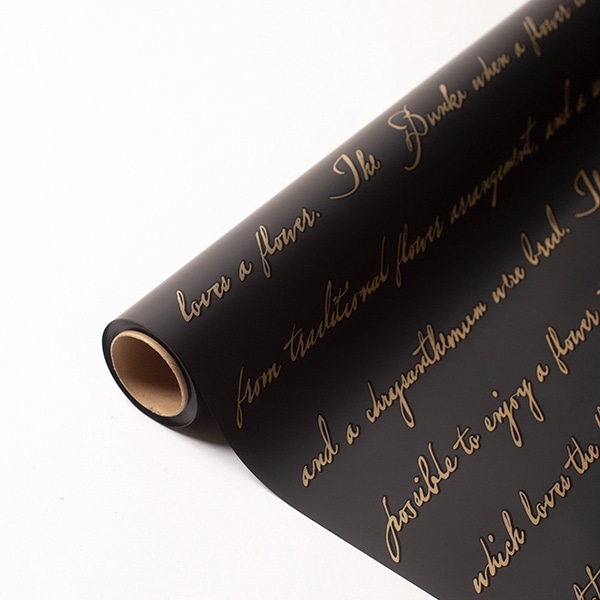 loves a flower. The Bunka when a flower
from traditional flower arrangement, and a
and a chrysanthemum were bred.
possible to enjoy a flower
which loves the